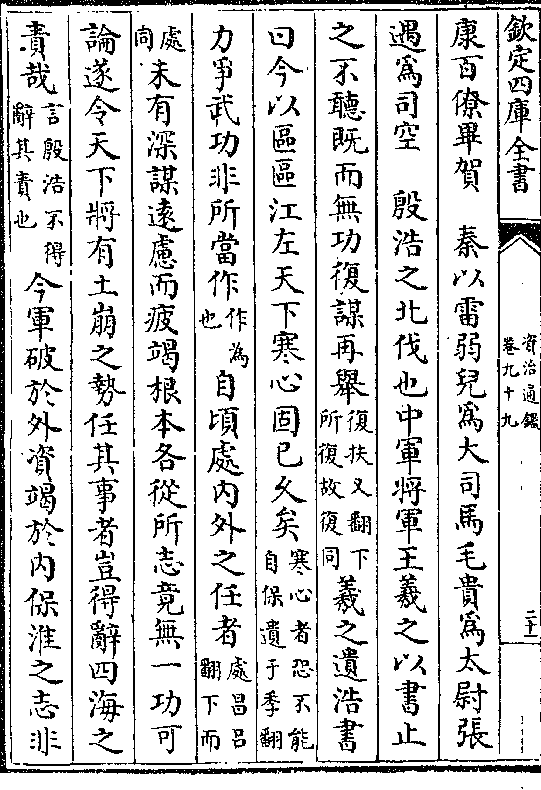 欽定四庫全書
資治通鑑
卷九十九
二十二
康百僚畢賀　秦以雷弱兒為大司馬毛貴為太尉張
遇為司空　殷浩之北伐也中軍將軍王羲之以書止
之不聽既而無功復謀再舉復扶又翻下所復故復同羲之遺浩書
曰今以區區江左天下寒心固已久矣寒心者恐不能自保遺于季翻
力爭武功非所當作作為也自頃處內外之任者處昌呂翻下而處同
未有深謀遠慮而疲竭根本各從所志竟無一功可
論遂令天下將有土崩之勢任其事者豈得辭四海之
責哉言殷浩不得辭其責也今軍破於外資竭於內保淮之志非